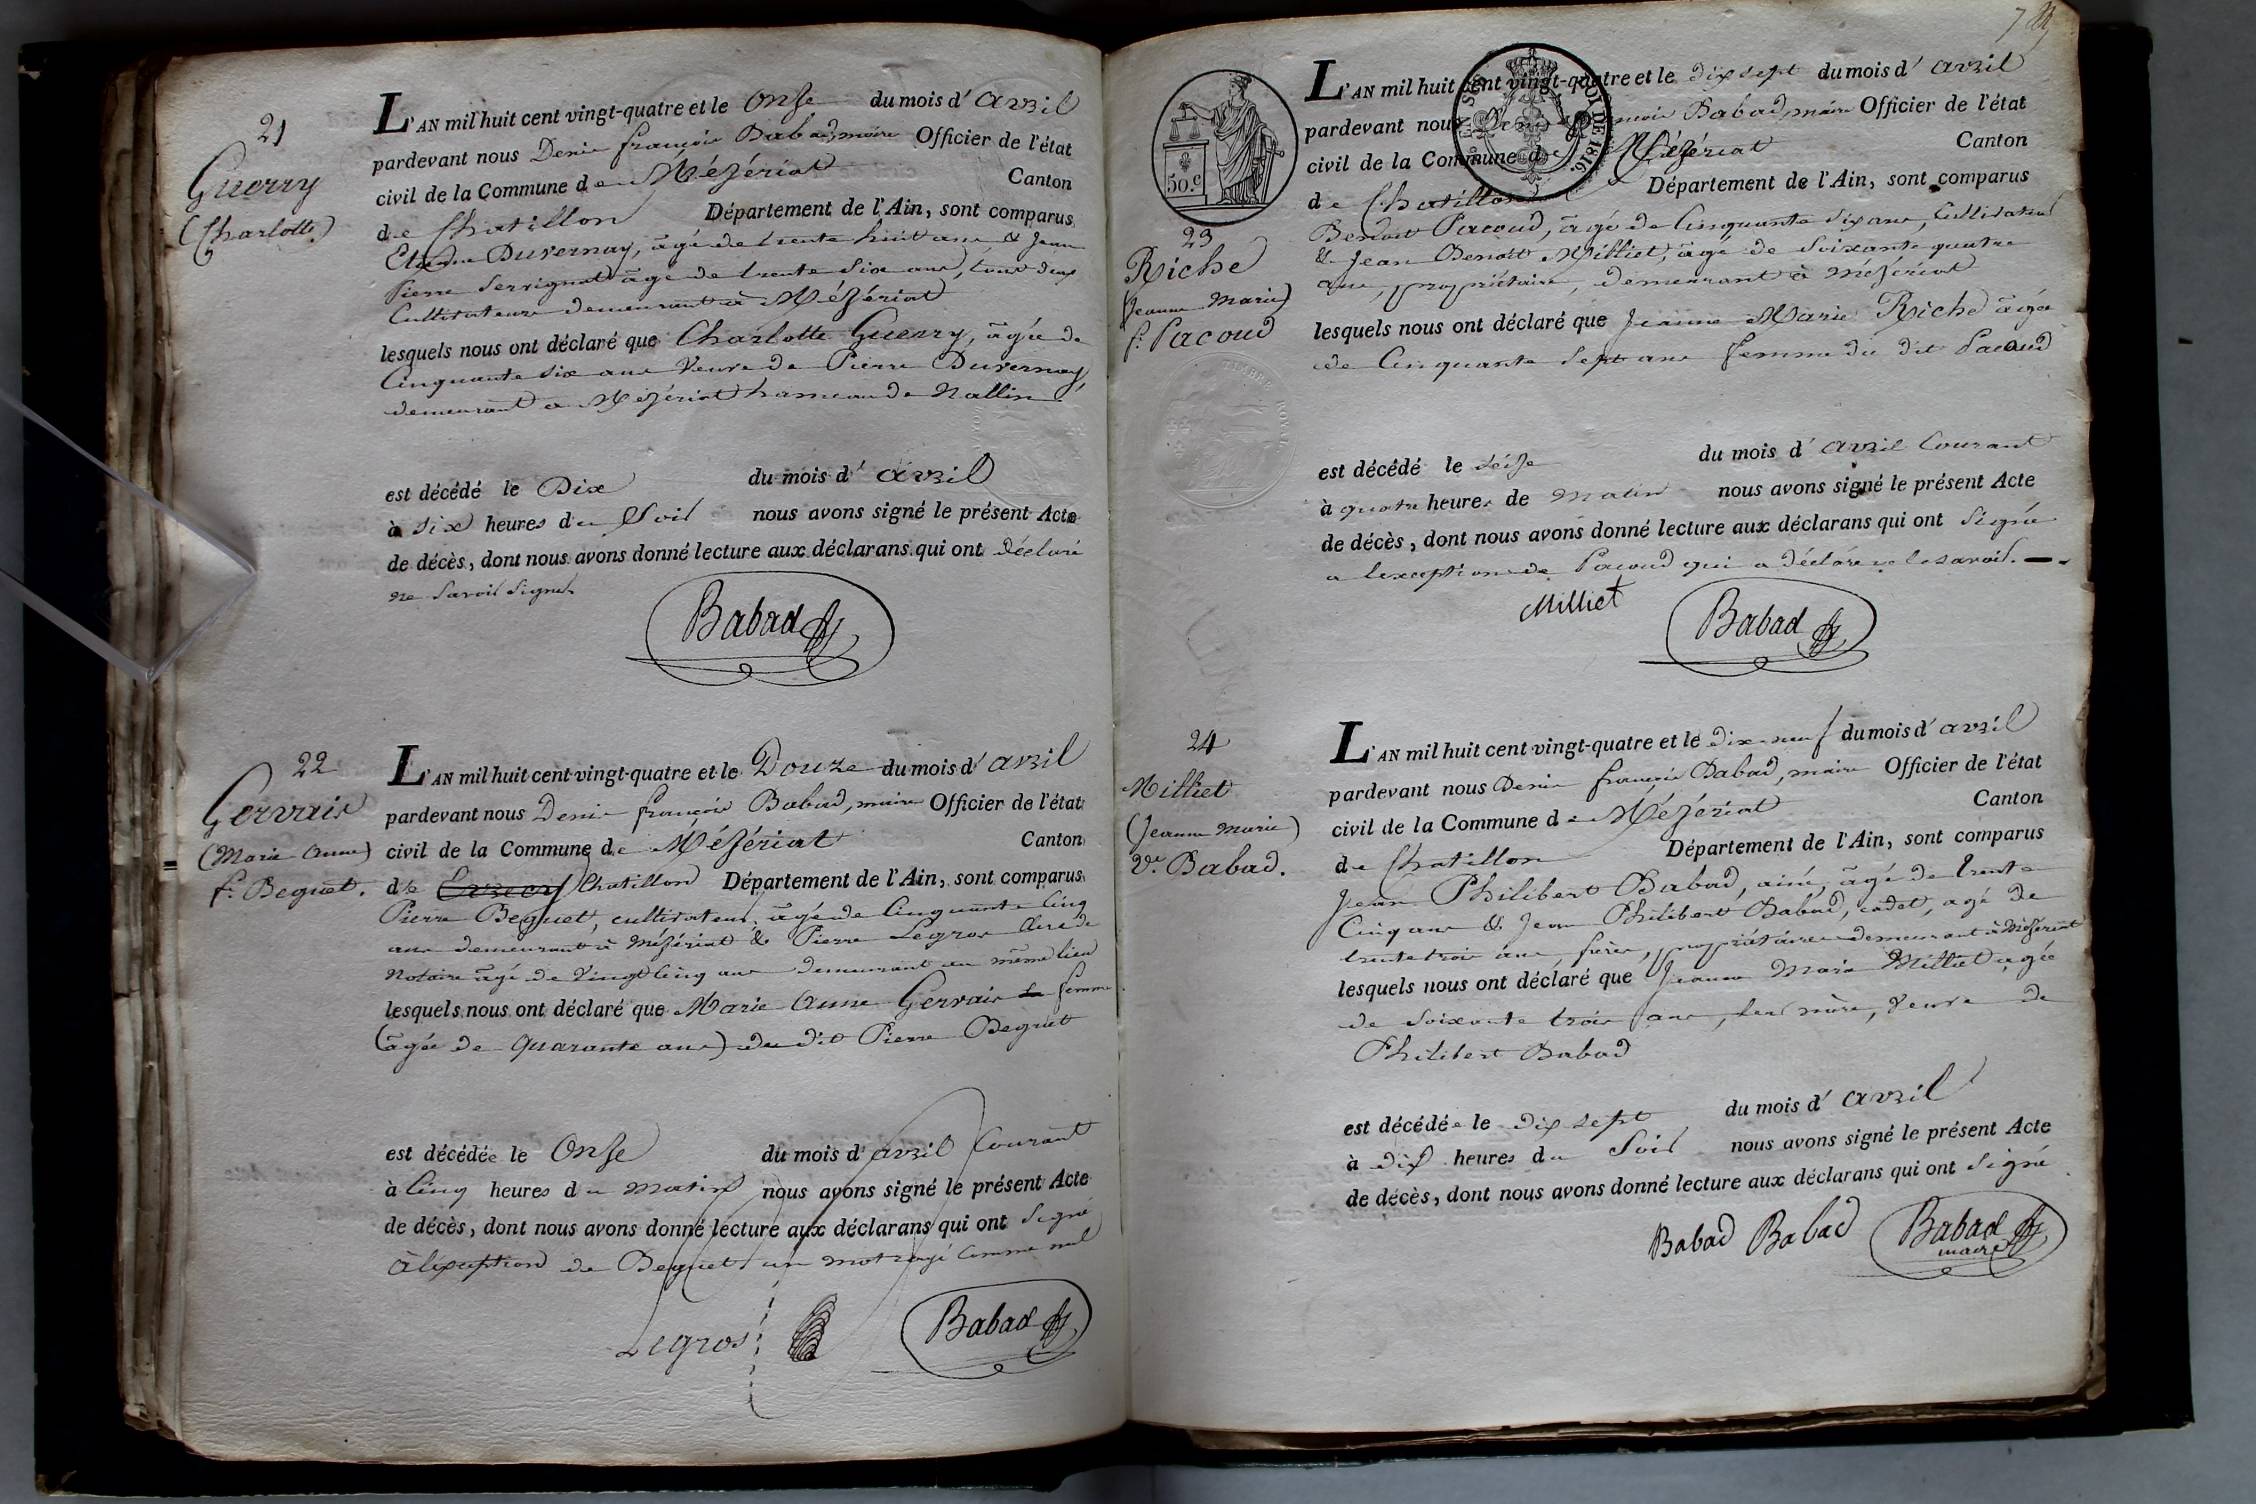 21
Guerry
(Charlotte)
L'AN mil huit cent vingt-quatre et le Onse du mois d'avril
pardevant nous Denis françois Babad, maire Officier de l'état
civil de la Commune de Mézériat Canton
de Chatillon Département de l'Ain, sont comparus
Etienne Duvernay, âgé de trente huit ans, & Jean
Pierre Serrignat âgé de trente six ans, tous deux
Cultivateurs demeurant à Mézériat
lesquels nous ont déclaré que Charlotte Guerry, âgée de
Cinquante six ans Veuve de Pierre Duvernay,
demeurant à Mézériat hameau de Nallin
est décédé le Dix du mois d'avril
à six heures du Soir nous avons signé le présent Acte
de décès, dont nous avons donné lecture aux déclarans qui ont déclaré
ne savoir signer
Babad
22
Gervais
(Marie Anne)
f.e Beguet.
L'AN mil huit cent vingt-quatre et le Douze du mois d'avril
pardevant nous Denis françois Babad, maire Officier de l'état
civil de la Commune de Mézériat Canton
de Chatillon Département de l'Ain, sont comparus
Pierre Beguet, cultivateur, âgé de Cinquante Cinq
ans demeurant à Mézériat & Pierre Legros Clerc de
Notaire âgé de Vingt Cinq ans demeurant au même lieu
lesquels nous ont déclaré que Marie Anne Gervais femme
(âgée de quarante ans) du dit Pierre Beguet
est décédée le Onse du mois d'avril Courant
à Cinq heures du matin nous avons signé le présent Acte
de décès, dont nous avons donné lecture aux déclarans qui ont signé
à l'exception de Beguet un mot rayé Comme nul
Legros Babad
7
50.c
ROI DE 1816
TIMBRE ROYAL
23
Riche
(Jeanne Marie)
f.e Pacoud
L'AN mil huit cent vingt-quatre et le dix sept du mois d'avril
pardevant nous Denis françois Babad, maire Officier de l'état
civil de la Commune de Mézériat Canton
de Chatillon Département de l'Ain, sont comparus
Benoit Pacoud, âgé de Cinquante six ans, Cultivateur
& Jean Benoit Milliet, âgé de Soixante quatre
ans, propriétaire, demeurant à Mézériat
lesquels nous ont déclaré que Jeanne Marie Riche âgée
de Cinquante Sept ans femme du dit Pacoud
est décédé le seise du mois d'avril Courant
à quatre heures de matin nous avons signé le présent Acte
de décès, dont nous avons donné lecture aux déclarans qui ont signé
a lexception de Pacoud qui a déclaré ne le savoir.
Milliet Babad
24
Milliet
(Jeanne Marie)
V.e Babad.
L'AN mil huit cent vingt-quatre et le dix-neuf du mois d'avril
pardevant nous Denis françois Babad, maire Officier de l'état
civil de la Commune de Mézériat Canton
de Chatillon Département de l'Ain, sont comparus
Jean Philibert Babad, ainé, âgé de trente
Cinq ans & Jean Philibert Babad, cadet, agé de
trente trois ans, frères, propriétaires demeurant à Mézériat
lesquels nous ont déclaré que Jeanne Marie Milliet agée
de Soixante trois ans, leur mère, Veuve de
Philibert Babad
est décédée le dix sept du mois d'avril
à dix heures du Soir nous avons signé le présent Acte
de décès, dont nous avons donné lecture aux déclarans qui ont signé
Babad Babad Babad
maire